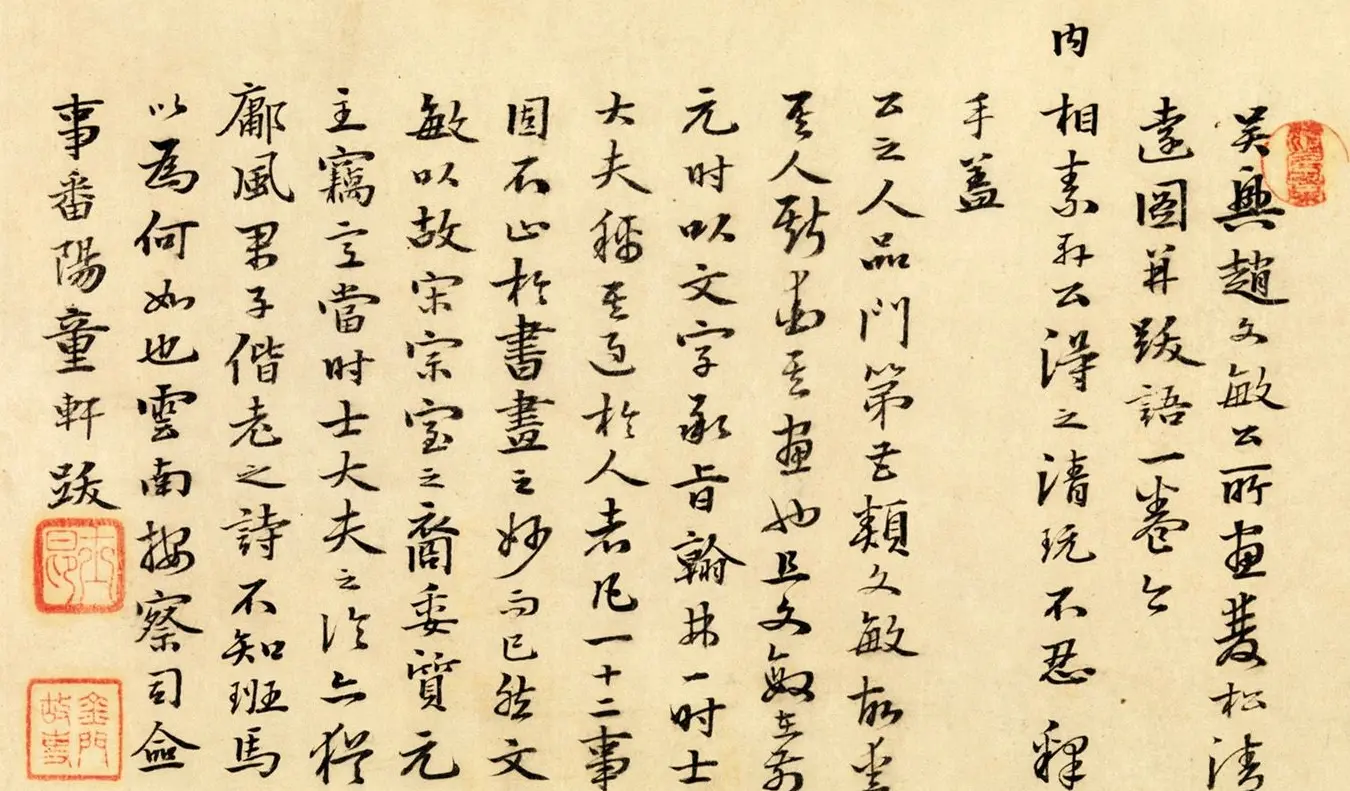 吳興趙文敏公所畫雙松清
遠圖并跋語一卷今
内相素軒公得之清玩不忍釋
手蓋
公之人品門第尤類文敏故愛
其人斯愛其畫也且文敏在前
元時以文字承旨翰林一時士
大夫稱其過於人者凡一十二事
固不止於書畫之妙而已然文
敏以故宋宗室之裔委質元
主竊意當時士大夫之論亦猶
鄘風君子偕老之詩不知班馬
以為何如也雲南按察司僉
事番陽童軒跋
金門故事